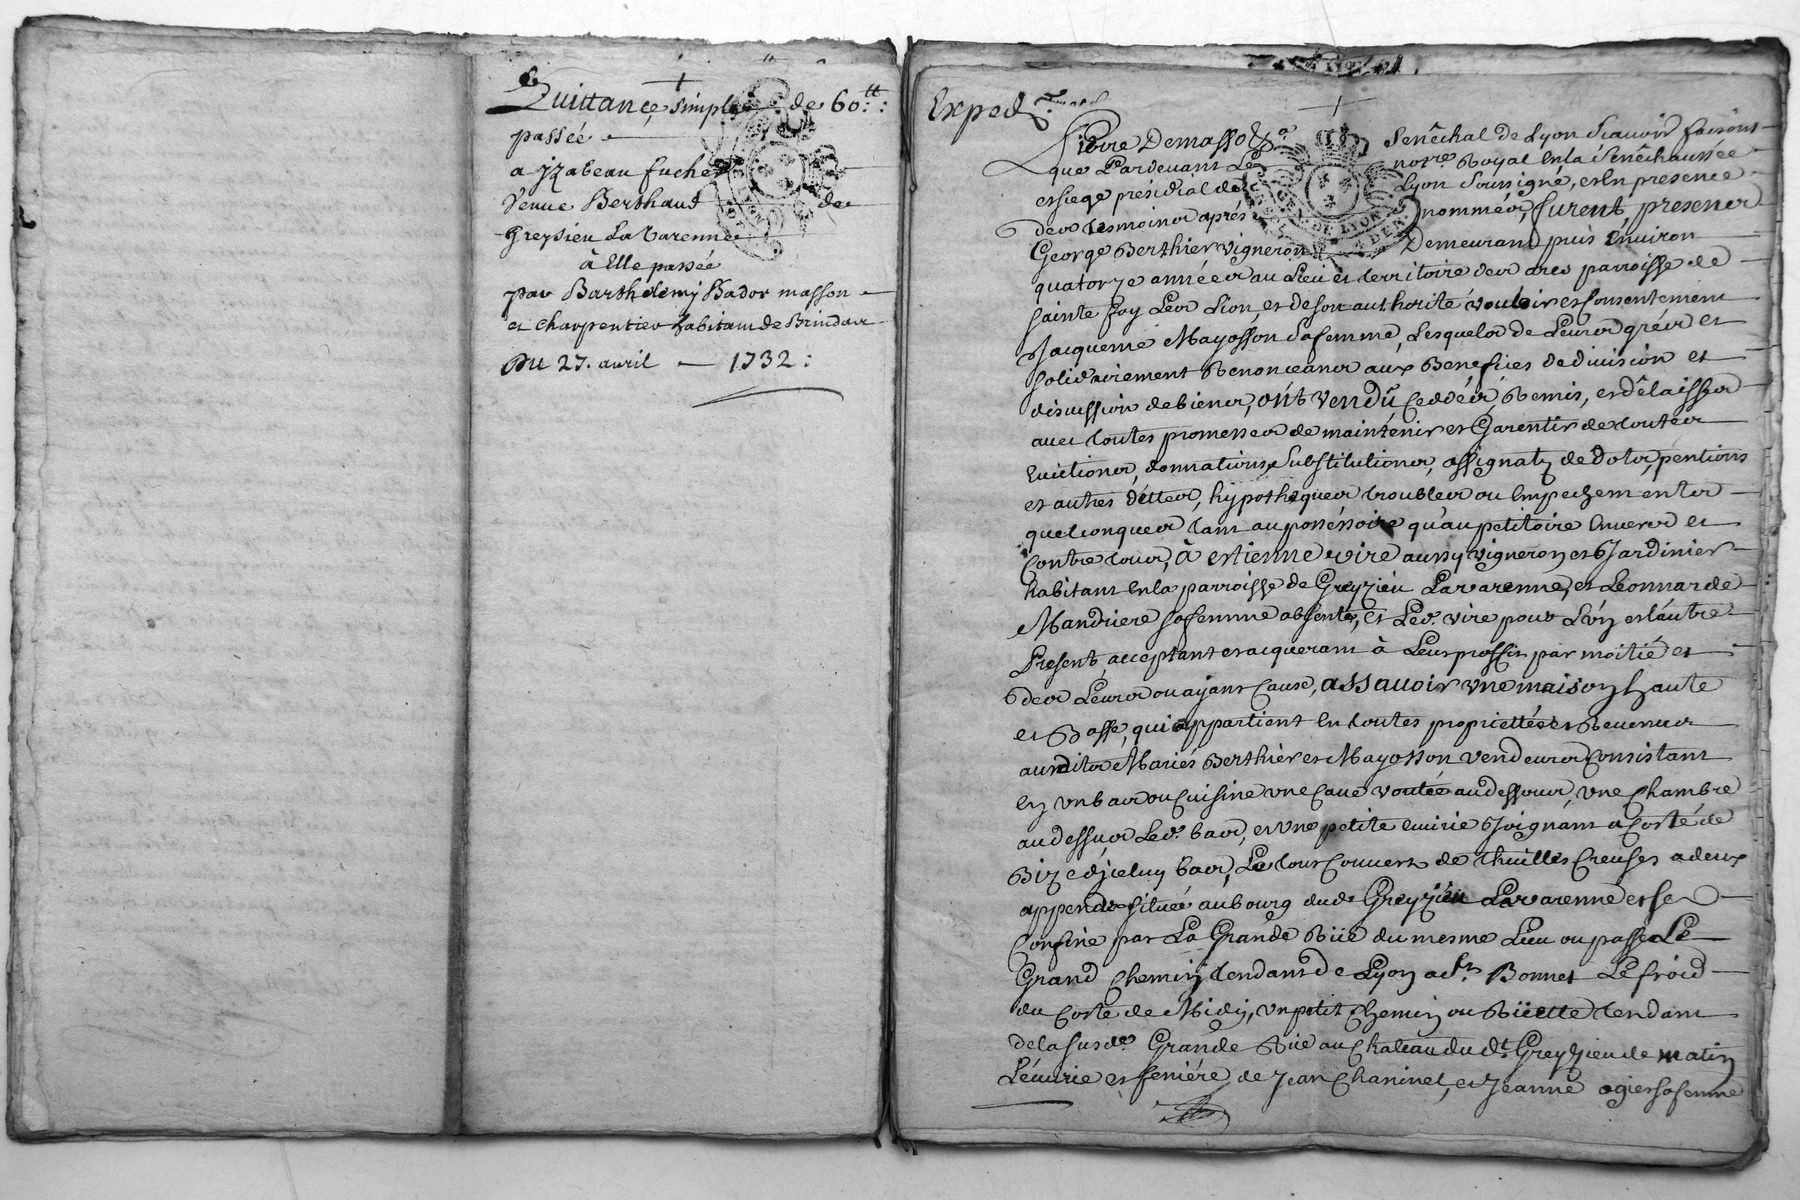 Quittance simple de 60:tt:
passée
a yzabeau fuché
Veuve Berthaud de
Greysieu La Varenne
à Elle passée
par Barthelemy Bador masson
et charpentier habitant de Brindas
Du 27. avril 1732:
Exped
Pierre Demasso Senêchal de Lyon Scauoir faisons
que Pardeuant Le notre Royal En la Senêchaussée
et siege presidial de Lyon Soussigné, et En presence
des tesmoins aprés nommés, furent presens
George Berthier vigneron Demeurant puis Enuiron
quatorze années au Lieu et territoire des ares parroisse de
sainte foy Les Lion, et de son authorité vouloir et Consentement
Jacqueme Mayosson sa femme, Lesquels de Leurs grés et
solidairement Renonceans aux Benefices de diuision et
discussion de biens, ont vendû Ceddés Remis, et délaissés
auec toutes promesses de maintenir et Garentir de toutes
Euictions, donnations, Substitutions, assignatz de dots, pentions
et autres déttes, hypotheques troubles ou Empechements
quelconques tant au posséssoire qu'au petitoire Enuers et
Contre tous, à estienne vire aussy vigneron et Jardinier
habitant En la parroisse de Greyzieu Lavarenne, et Leonnarde
Mandriere sa femme absente, et Led. vire pour L'vn et L'autre
Present, acceptant et acquerant à Leur proffit par moitié et
des Leurs ou ayant Cause, assauoir vne maison haute
et Basse, qui appartient En toutes proprietté et Reuenus
ausdits Mariés Berthier et Mayosson vendeurs Consistant
En vn bas ou Cuisine vne Caue voutée au dessous, vne Chambre
au dessus Led. bas, et vne petite Ecurie Joignant a Costé de
Bize d'jceluy bas, Le tout Couuert de thuilles Creuses a deux
appends située au bourg dud. Greyzieu Lavarenne et se
Confine par La Grande Rüe du mesme Lieu ou passe Le
Grand Chemin tendant de Lyon a St. Bonnet Le froid
du Costé de Midy, vn petit Chemin ou Rüette tendant
de la susde. Grande Rüe au Chateau du dt. Greyzieu de matin
L'écurie et feniére, de Jean Chaninel, et Jeanne ogier sa femme